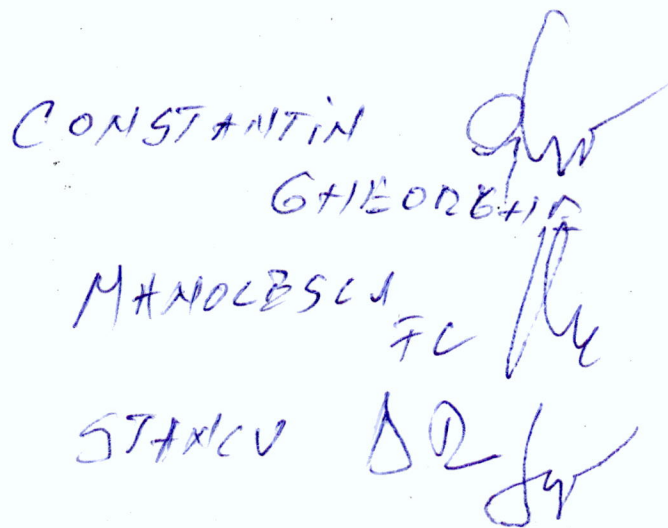 CONSTANTIN
GHEORGHE
MANOLESCU
FC
STANCU DR